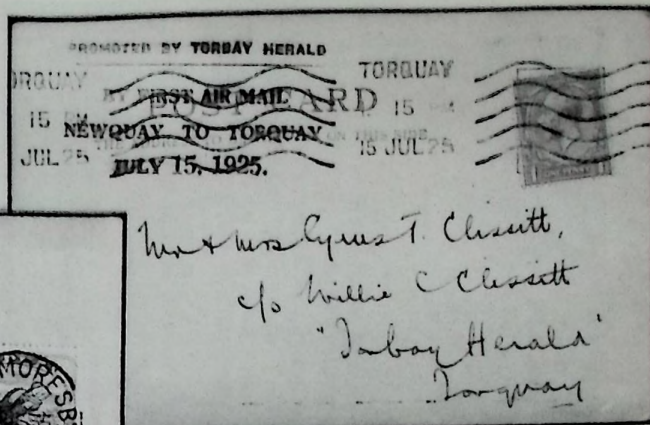 PROMOTED BY TORBAY HERALD
TORQUAY
15 PM
15 JUL 25
BY FIRST AIR MAIL
POST CARD
NEWQUAY TO TORQUAY
JULY 15, 1925.
TORQUAY
15 PM
15 JUL 25
Mr & Mrs Cyrus T. Clissitt,
c/o Willie C Clissitt
"Torbay Herald"
Torquay
MORESB